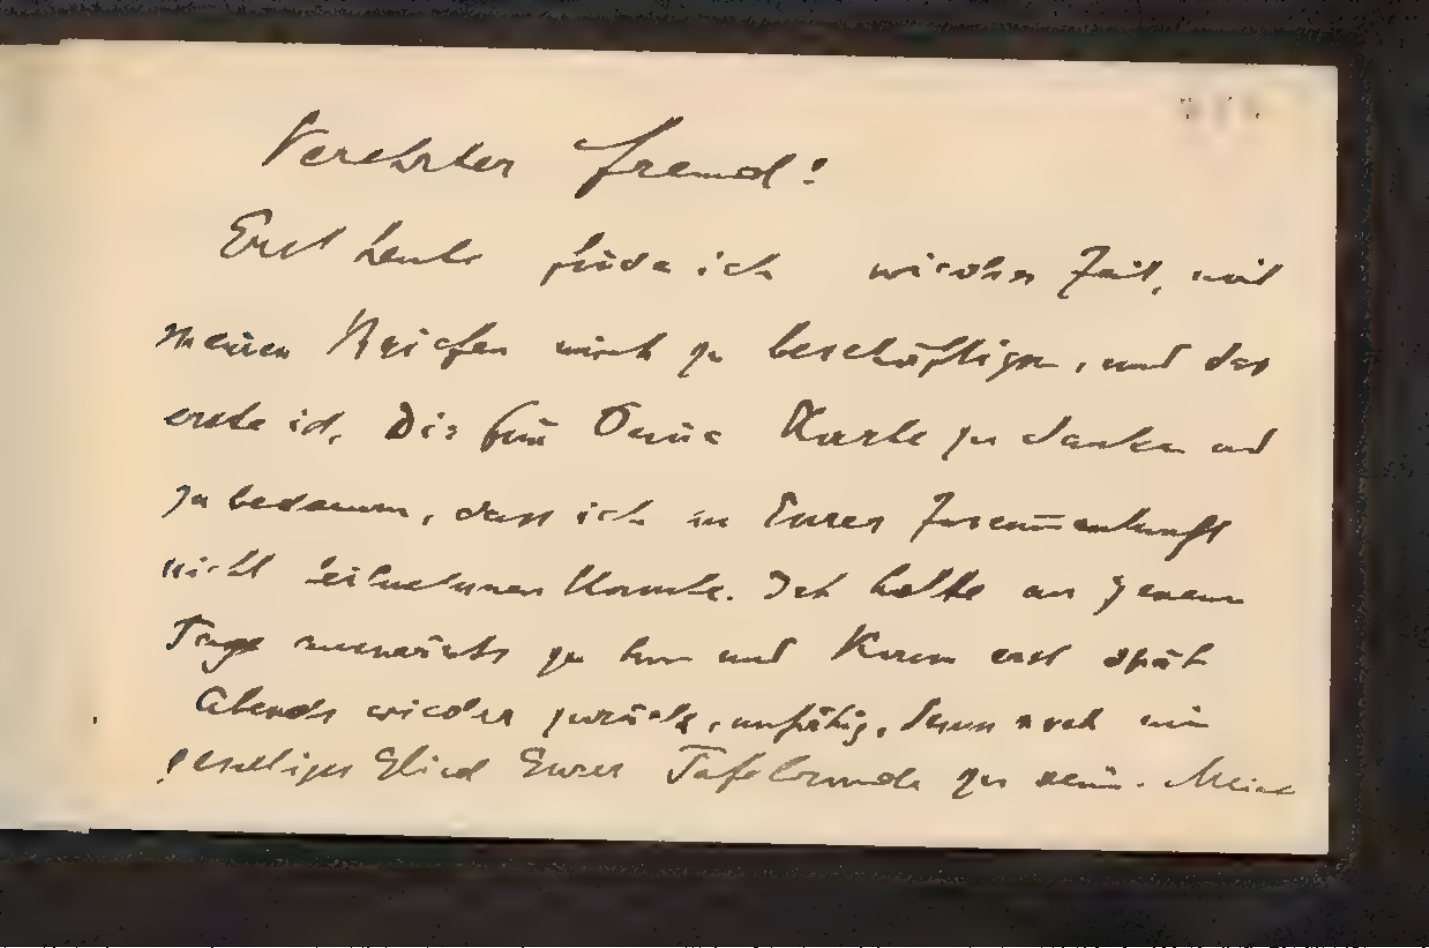 Verehrter Freund!
Erst heute finde ich wieder Zeit, mit
meinen Briefen mich zu beschäftigen, und das
erste ist, Dir für Deine Karte zu danken und
zu bedauern, dass ich an Eurer Zusam̅enkunft
nicht teilnehmen konnte. Ich hatte an jenem
Tage auswärts zu tun und kam erst spät
Abends wieder zurück, unfähig, dann noch ein
geselliges Glied Eurer Tafelrunde zu sein. Meine